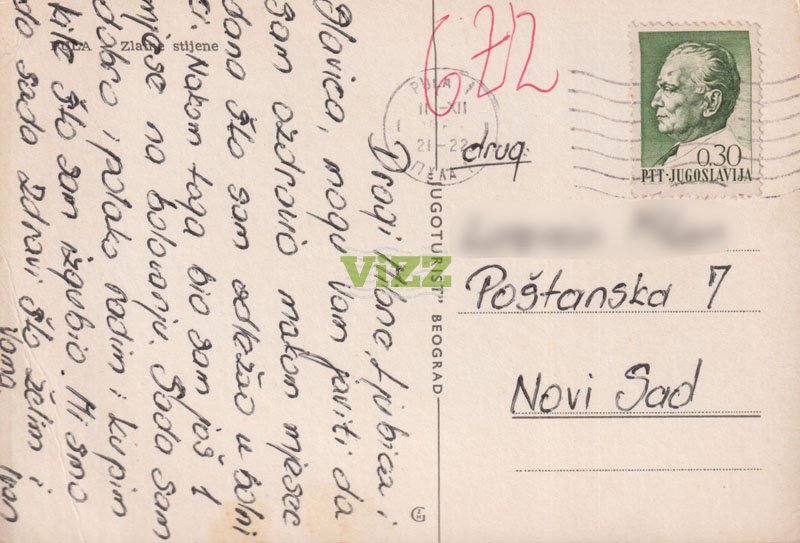 PULA Zlatne stijene
Dragi Milane, Ljubica i
Slavica, mogu Vam javiti da
sam ozdravio nakon mjesec
dana što sam odležao u bolni
ci. Nakon toga bio sam još 1
mjesec na bolovanju. Sada sam
dobro i polako radim i kupim
kile što sam izgubio. Mi smo
do sada zdravi što želim i
Vama. Ivan
"JUGOTURIST" BEOGRAD
672
PULA
11-XII
21-22
ПУЛА
0.30
PTT-JUGOSLAVIJA
drug
Poštanska 7
Novi Sad
ViZZ